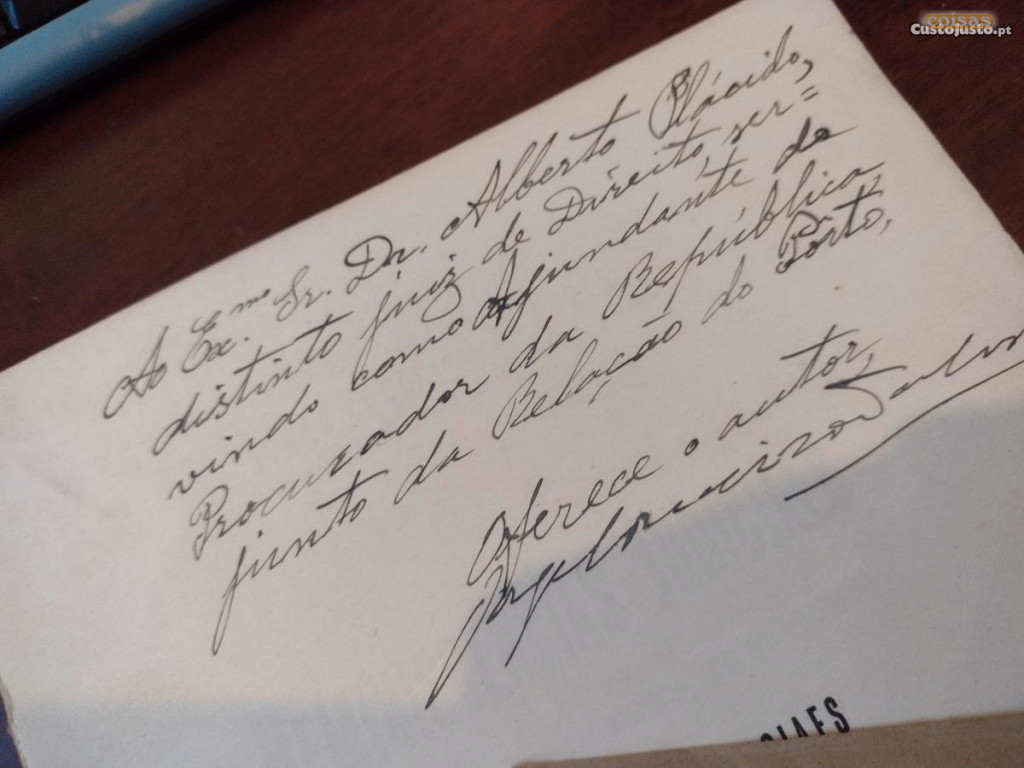 coisas
Custojusto.pt
Ao Ex.mo Sr. Dr. Alberto Plácido,
distinto juiz de Direito ser=
vindo como Ajundante do
Procurador da República
junto da Relação do Porto,
Oferece o autor,
CIAES